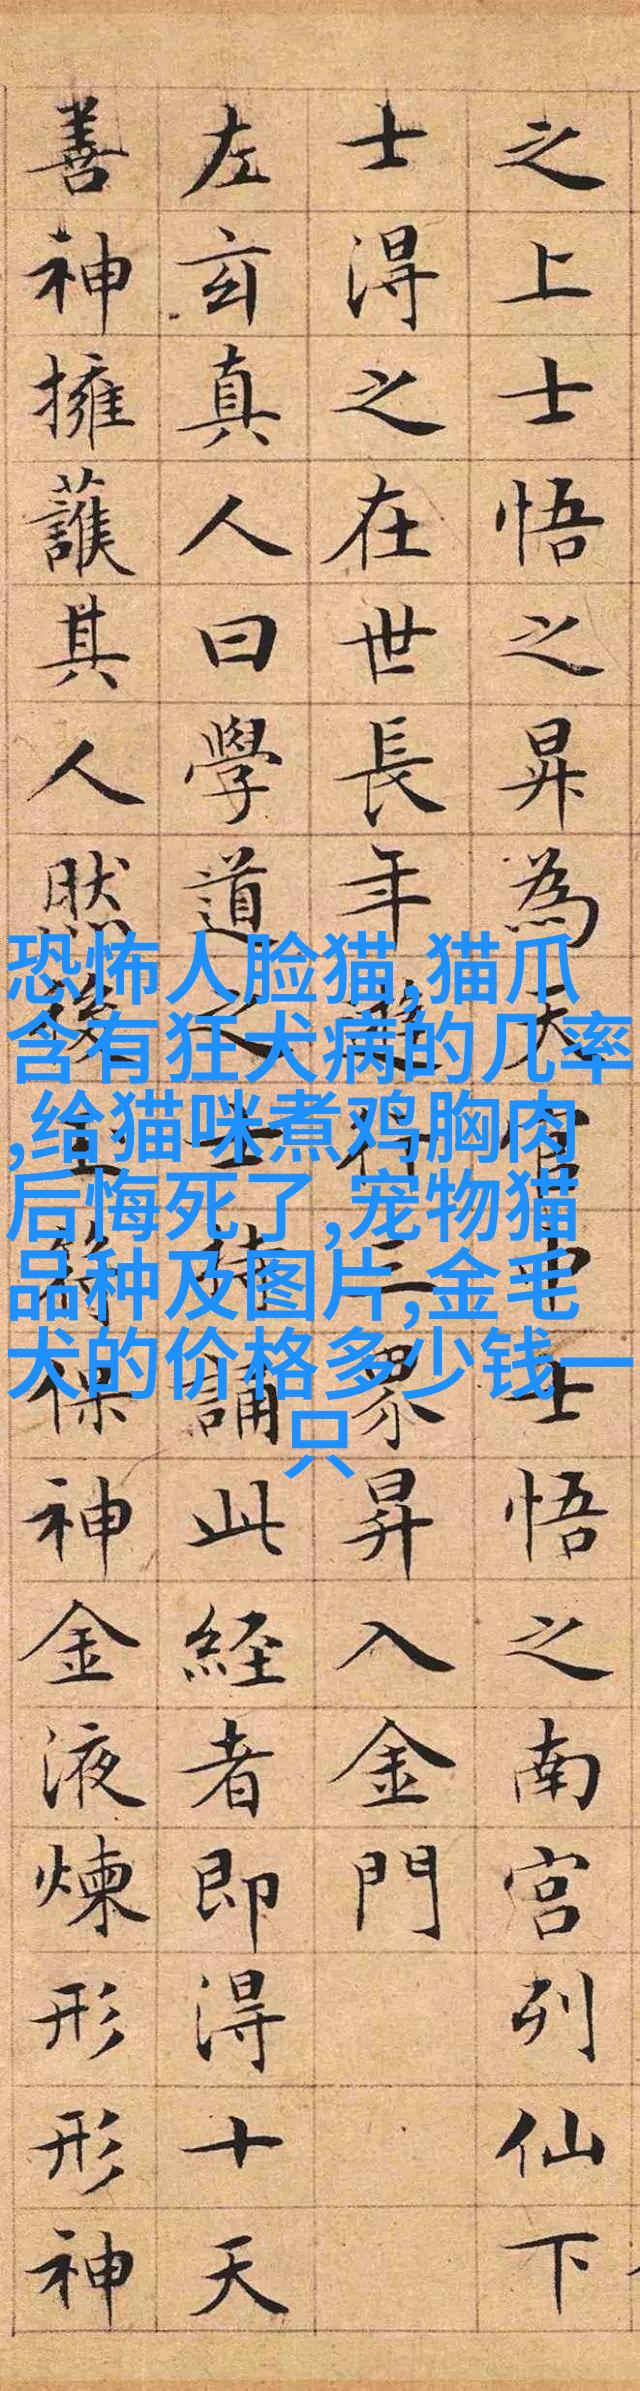 之上士悟之昇為天官中士悟之南宮列仙下
士淂之在世長年遊行三界昇入金門
左玄真人曰學道之士持誦此經者即淂十天
善神擁護其人然後玉符保神金液煉形形神
恐怖人脸猫,猫爪
含有狂犬病的几率
,给猫咪煮鸡胸肉
后悔死了,宠物猫
品种及图片,金毛
犬的价格多少钱一
只